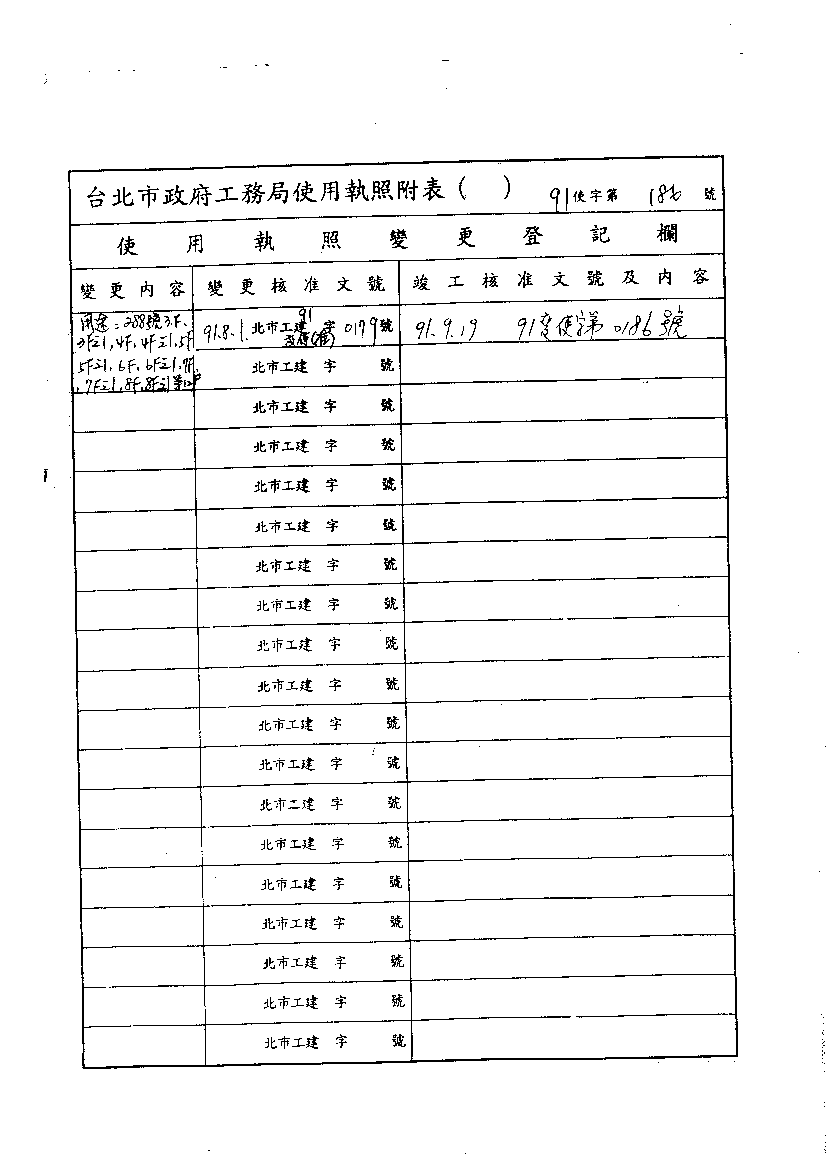 台北市政府工務局使用執照附表( ) 91使字第 186 號
使用執照變更登記欄
變更內容 變更核准文號 竣工核准文號及內容
用途:288號3F、
3F之1,4F,4F之1,5F
5F之1,6F,6F之1,7F,
,7F之1,8F,8F之1等12戶
91.8.1. 北市工建 91 字 0179號
91.9.19 91變使字第0186號
北市工建 字 號
北市工建 字 號
北市工建 字 號
北市工建 字 號
北市工建 字 號
北市工建 字 號
北市工建 字 號
北市工建 字 號
北市工建 字 號
北市工建 字 號
北市工建 字 號
北市工建 字 號
北市工建 字 號
北市工建 字 號
北市工建 字 號
北市工建 字 號
北市工建 字 號
北市工建 字 號